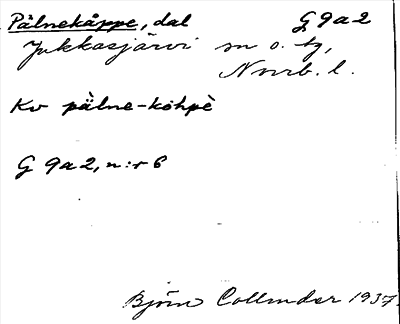 Pålnekåppe, dal G 9a2
Jukkasjärvi sn o. tg,
Norrb. l.
Kv pàlne-kòhpè
G 9a2, n:r 6
Björn Collinder 1937.